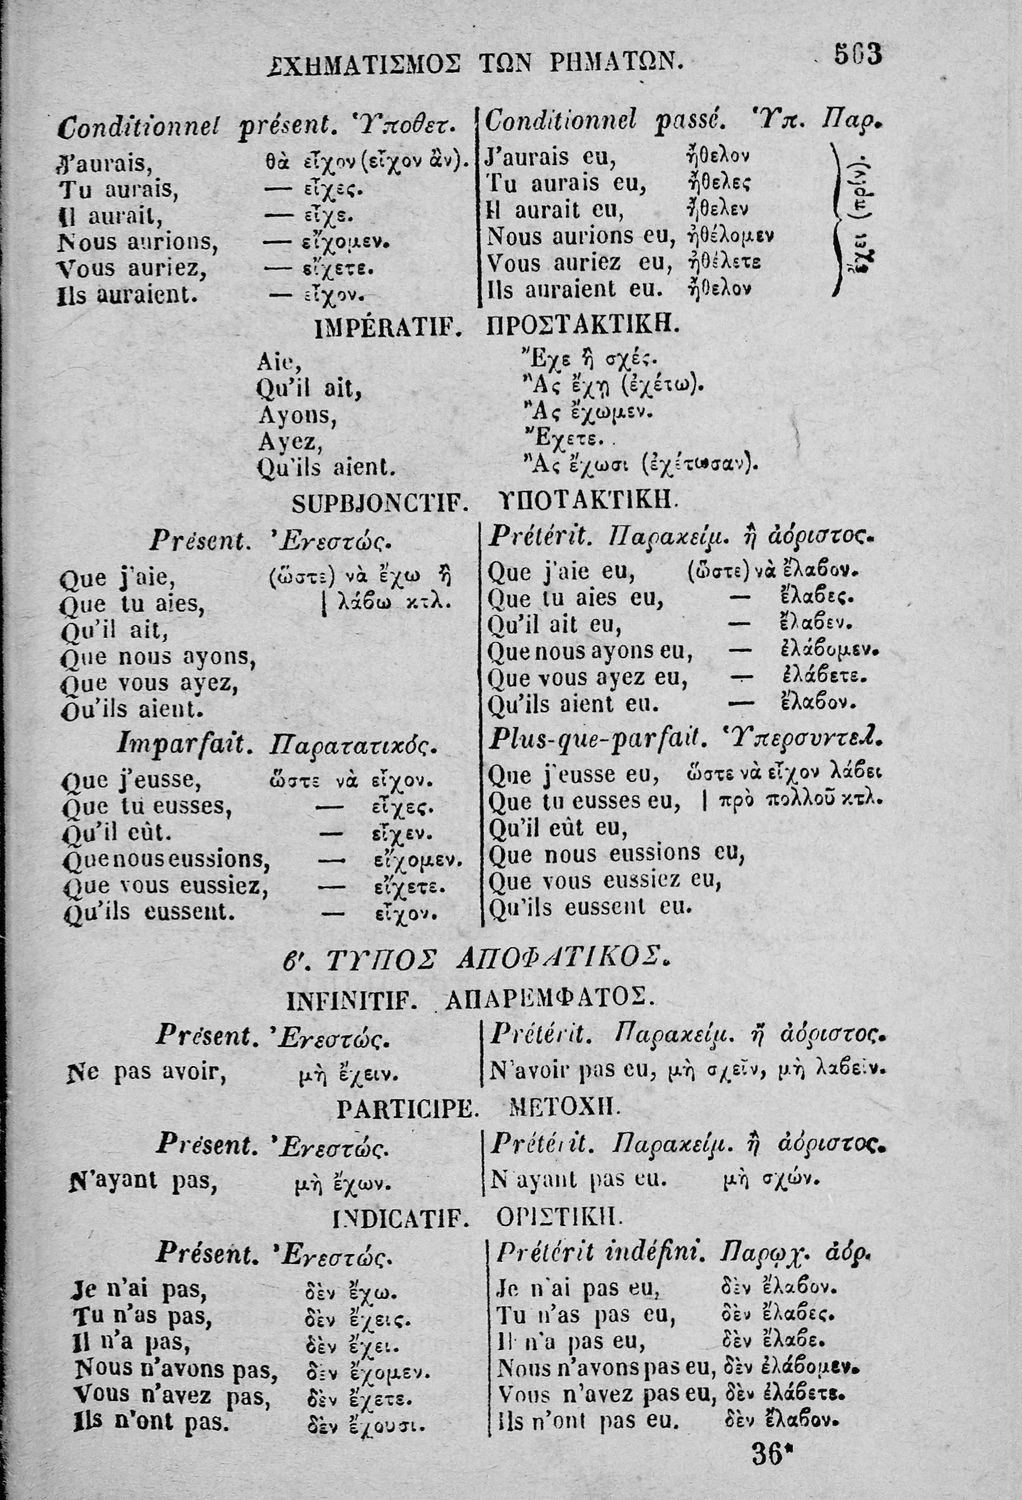 ΣΧΗΜΑΤΙΣΜΟΣ ΤΩΝ ΡΗΜΑΤΩΝ. 563
Conditionnel présent. Ὑποθετ.
J'aurais, θὰ εἶχον (εἶχον ἂν).
Tu aurais, — εἶχες.
Il aurait, — εἶχε.
Nous aurions, — εἴχομεν.
Vous auriez, — εἴχετε.
Ils auraient. — εἶχον.
Conditionnel passé. Ὑπ. Παρ.
J'aurais eu, ἤθελον
Tu aurais eu, ἤθελες
Il aurait eu, ἤθελεν
Nous aurions eu, ἠθέλομεν
Vous auriez eu, ἠθέλετε
Ils auraient eu. ἤθελον
ἔχει (πρίν).
IMPÉRATIF. ΠΡΟΣΤΑΚΤΙΚΗ.
Aie, Ἔχε ἢ σχές.
Qu'il ait, Ἂς ἔχῃ (ἐχέτω).
Ayons, Ἂς ἔχωμεν.
Ayez, Ἔχετε.
Qu'ils aient. Ἂς ἔχωσι (ἐχέτωσαν).
SUPBJONCTIF. ΥΠΟΤΑΚΤΙΚΗ.
Présent. Ἐνεστώς.
Que j'aie, (ὥστε) νὰ ἔχω ἢ
Que tu aies, | λάβω κτλ.
Qu'il ait,
Que nous ayons,
Que vous ayez,
Qu'ils aient.
Prétérit. Παρακείμ. ἢ ἀόριστος.
Que j'aie eu, (ὥστε) νὰ ἔλαβον.
Que tu aies eu, — ἔλαβες.
Qu'il ait eu, — ἔλαβεν.
Que nous ayons eu, — ἐλάβομεν.
Que vous ayez eu, — ἐλάβετε.
Qu'ils aient eu. — ἔλαβον.
Imparfait. Παρατατικός.
Que j'eusse, ὥστε νὰ εἶχον.
Que tu eusses, — εἶχες.
Qu'il eût. — εἶχεν.
Que nous eussions, — εἴχομεν.
Que vous eussiez, — εἴχετε.
Qu'ils eussent. — εἶχον.
Plus-que-parfait. Ὑπερσυντελ.
Que j'eusse eu, ὥστε νὰ εἶχον λάβει
Que tu eusses eu, | πρὸ πολλοῦ κτλ.
Qu'il eût eu,
Que nous eussions eu,
Que vous eussiez eu,
Qu'ils eussent eu.
β'. ΤΥΠΟΣ ΑΠΟΦΑΤΙΚΟΣ.
INFINITIF. ΑΠΑΡΕΜΦΑΤΟΣ.
Présent. Ἐνεστώς.
Ne pas avoir, μὴ ἔχειν.
Prétérit. Παρακείμ. ἢ ἀόριστος.
N'avoir pas eu, μὴ σχεῖν, μὴ λαβεῖν.
PARTICIPE. ΜΕΤΟΧΗ.
Présent. Ἐνεστώς.
N'ayant pas, μὴ ἔχων.
Prétérit. Παρακείμ. ἢ ἀόριστος.
N'ayant pas eu. μὴ σχών.
INDICATIF. ΟΡΙΣΤΙΚΗ.
Présent. Ἐνεστώς.
Je n'ai pas, δὲν ἔχω.
Tu n'as pas, δὲν ἔχεις.
Il n'a pas, δὲν ἔχει.
Nous n'avons pas, δὲν ἔχομεν.
Vous n'avez pas, δὲν ἔχετε.
Ils n'ont pas. δὲν ἔχουσι.
Prétérit indéfini. Παρῳχ. ἀόρ.
Je n'ai pas eu, δὲν ἔλαβον.
Tu n'as pas eu, δὲν ἔλαβες.
Il n'a pas eu, δὲν ἔλαβε.
Nous n'avons pas eu, δὲν ἐλάβομεν.
Vous n'avez pas eu, δὲν ἐλάβετε.
Ils n'ont pas eu. δὲν ἔλαβον.
36*